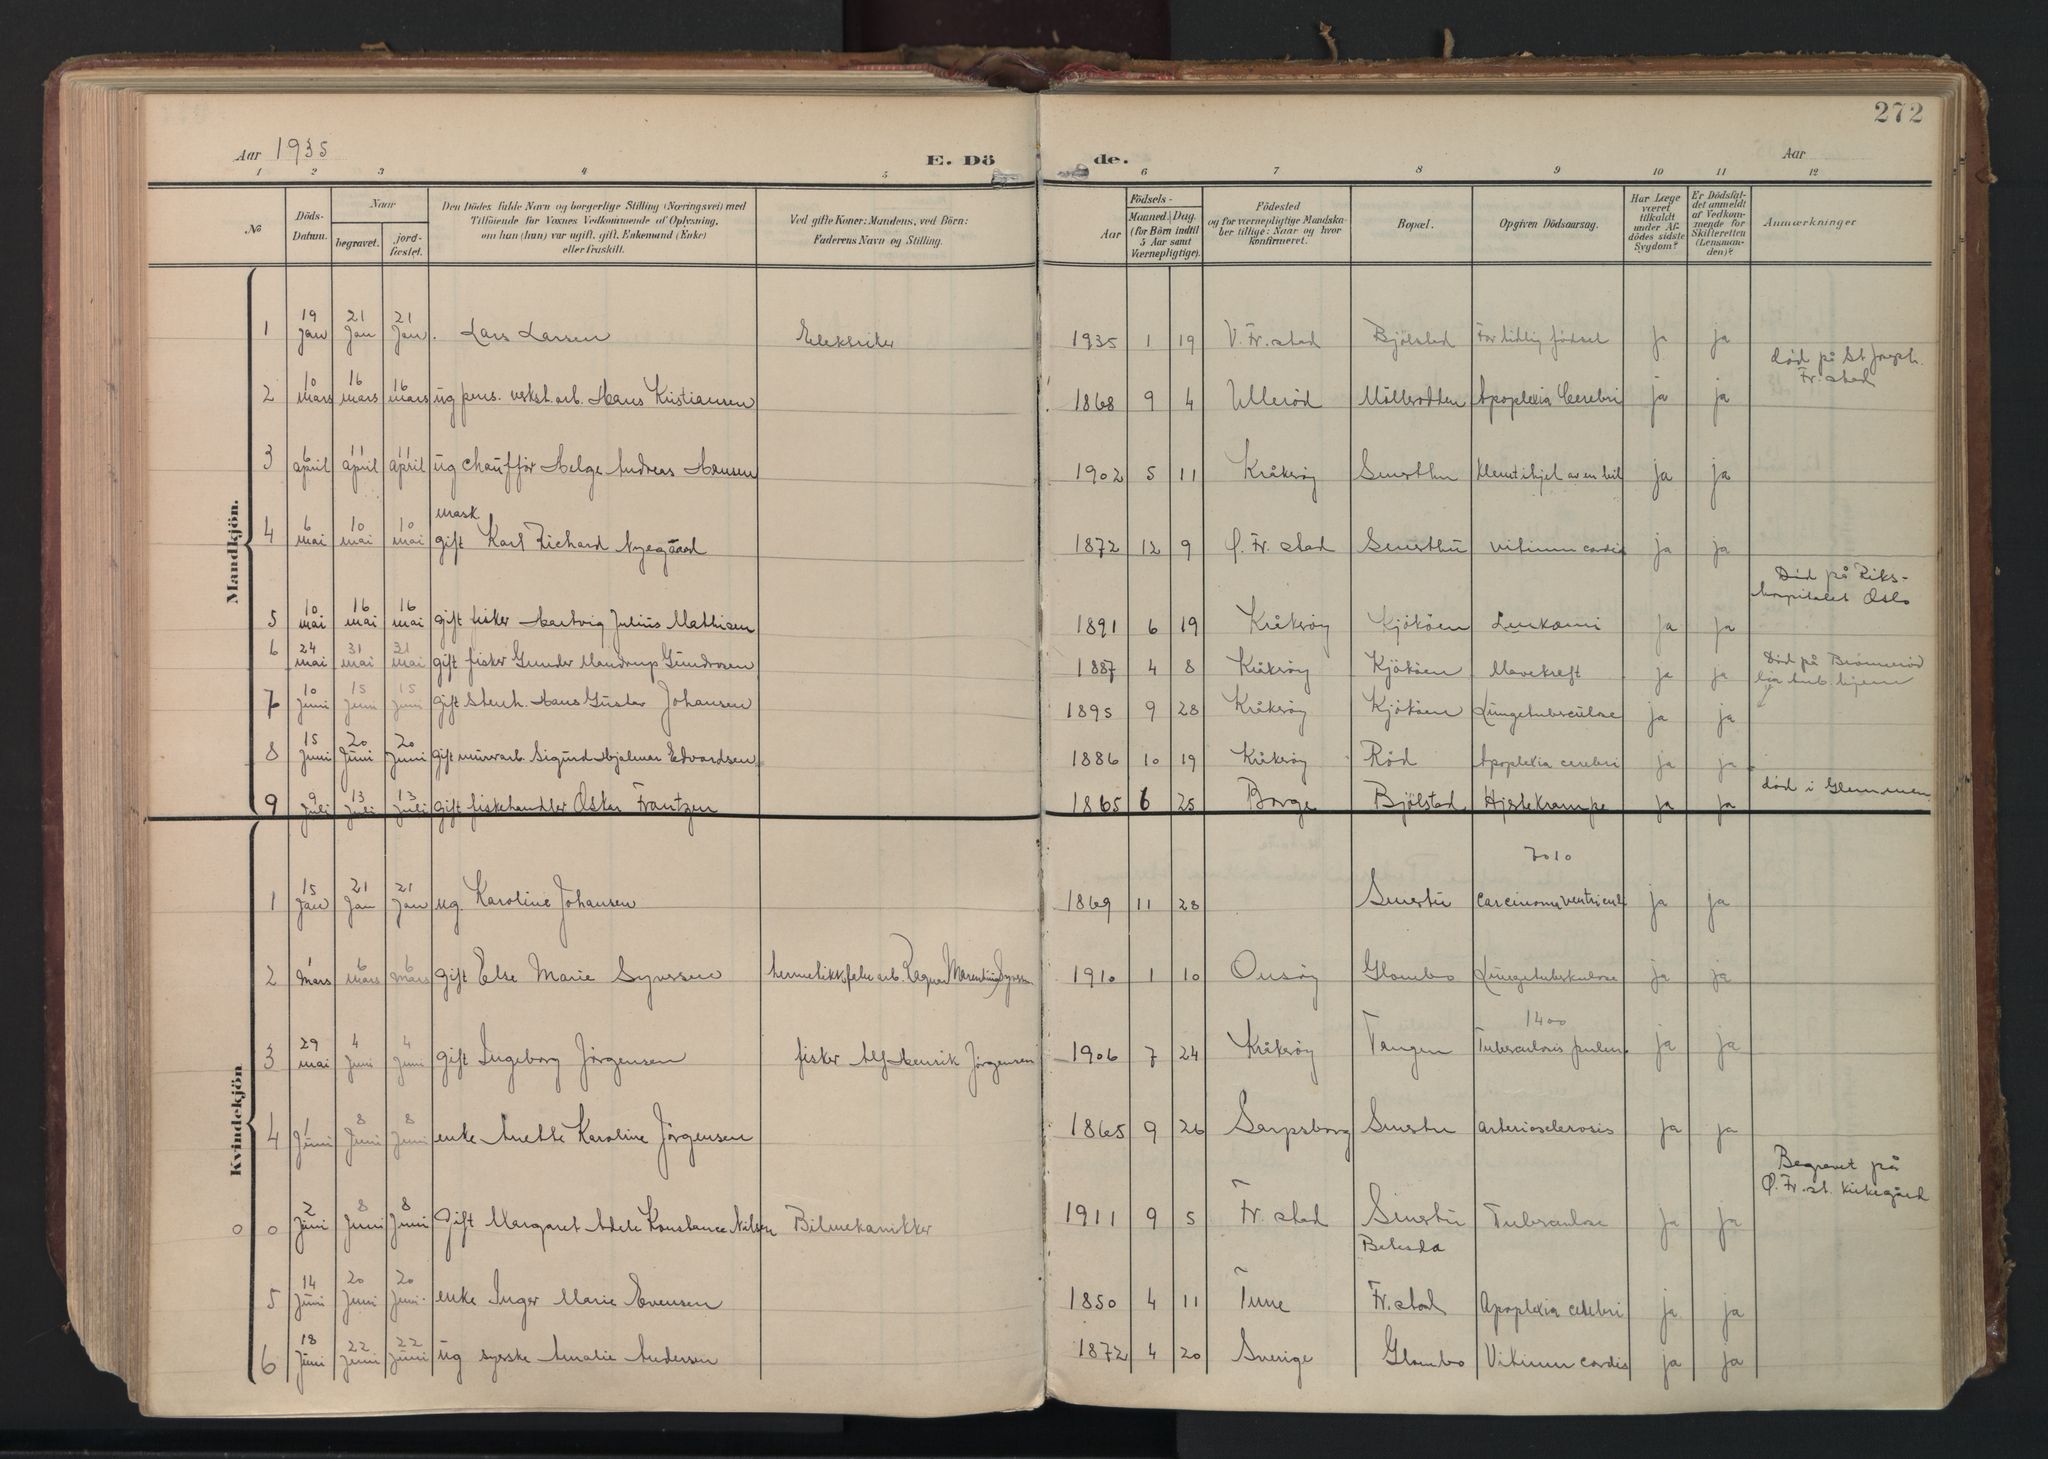 272
Aar 1935
E. Dö de.
Aar
1 2 3 4 5 6 7 8 9 10 11 12
No
Döds-Datum.
Naar
begravet.
jord-fæstet.
Den Dödes fulde Navn og borgerlige Stilling (Næringsvei) med
Tilföiende for Voxnes Vedkommende af Oplysning,
om han (hun) var ugift, gift, Enkemand (Enke)
eller fraskilt.
Ved gifte Koner: Mandens, ved Börn:
Faderens Navn og Stilling.
Födsels-
Aar
Maaned. Dag.
(for Börn indtil
5 Aar samt
Værnepligtige).
Födested
og for værnepligtige Mandska-
ber tillige: Naar og hvor
konfirmeret.
Bopæl.
Opgiven Dödsaarsag.
Har Læge
været
tilkaldt
under Af-
dödes sidste
Sygdom?
Er Dödsfal-
det anmeldt
af Vedkom-
mende for
Skifteretten
(Lensman-
den)?
Anmærkninger
Mandkjön.
1 19 Jan 21 Jan 21 Jan. Lars Larsen Elektriker 1935 1 19 V. Fr. stad Bjölstad For tidlig födsel ja ja
död på St Joseph. Fr. stad
2 10 mars 16 mars 16 mars ug pens. verkst. arb. Hans Kristiansen 1868 9 4 Ullerød Möllerodden Apoplexia Cerebri ja ja
3 6 april 11 april 11 april ug chaufför Helge Andreas Hansen 1902 5 11 Kråkeröy Smertu Klemt ihjel av en bil ja ja
4 6 mai 10 mai 10 mai gift mask Karl Richard Nyegaard 1872 12 9 Ø. Fr. stad Smertu vitium cordis ja ja
Död på Riks-
hospitalet Oslo
5 10 mai 16 mai 16 mai gift fisker Hartvig Julius Mathisen 1891 6 19 Kråkeröy Kjököen Leukæmi ja ja
6 24 mai 31 mai 31 mai gift fisker Gunder Mandrup Gundersen 1887 4 8 Kråkeröy Kjököen Mavekreft ja ja
Död på
tub. hjem
7 10 Juni 15 Juni 15 Juni gift stenh. Hans Gustav Johansen 1895 9 28 Kråkeröy Kjököen Lungetuberculose ja ja
8 15 Juni 20 Juni 20 Juni gift murerarb. Sigurd Hjalmar Edvardsen 1886 10 19 Kråkeröy Röd Apoplexia cerebri ja ja
9 9 Juli 13 Juli 13 Juli gift fiskehandler Oskar Frantzen 1865 6 25 Borge Bjölstad Hjertekrampe ja ja död i Glemmen
Kvindekjön
7010
1 15 Jan 21 Jan 21 Jan ug. Karoline Johansen 1869 11 28 Smertu Carcinoma ventriculi ja ja
2 1 mars 6 mars 6 mars gift Else Marie Syversen hermetikkfabr. arb. Ragnar Marentius Syvers. 1910 1 10 Onsöy Glombo Lungetuberkulose ja ja
1400
3 29 mai 4 Juni 4 Juni gift Ingeborg Jörgensen fisker Alf Henrik Jörgensen 1906 7 24 Kråkeröy Tangen Tuberculosis pulm. ja ja
4 1 Juni 8 Juni 8 Juni enke Anette Karoline Jörgensen 1865 9 26 Sarpsborg Smertu Arteriosclerosis ja ja
Begravet på
Ø. Fr. st. kirkegård
0 0 2 Juni 8 Juni 8 Juni Gift Margaret Adele Konstance Nilsen Bilmekanikker 1911 9 5 Fr. stad Smertu Tuberculose ja ja
5 14 Juni 20 Juni 20 Juni. enke Inger Marie Evensen 1850 4 11 Tune Betesda Fr. stad Apoplexia cerebri ja ja
6 18 Juni 22 Juni 22 Juni ug syerske Amalie Andersen 1872 4 20 Sverige Glombo Vitium cordis ja ja